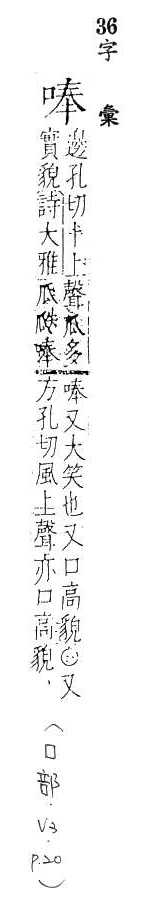 36
字彙
唪
邊孔切卜上聲瓜多
實貌詩大雅瓜瓞唪
唪又大笑也又口高貌○又
方孔切風上聲亦口高貌.
(口部.V3.P.20)